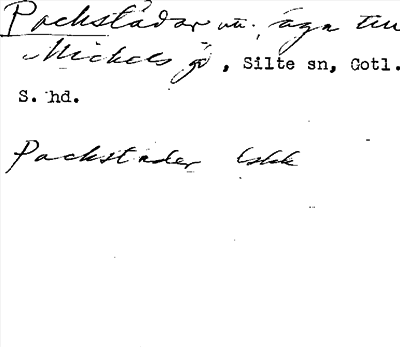 Packstädar vn. äga till
Mickels gd, Silte sn, Gotl.
S. hd.
Packstäder